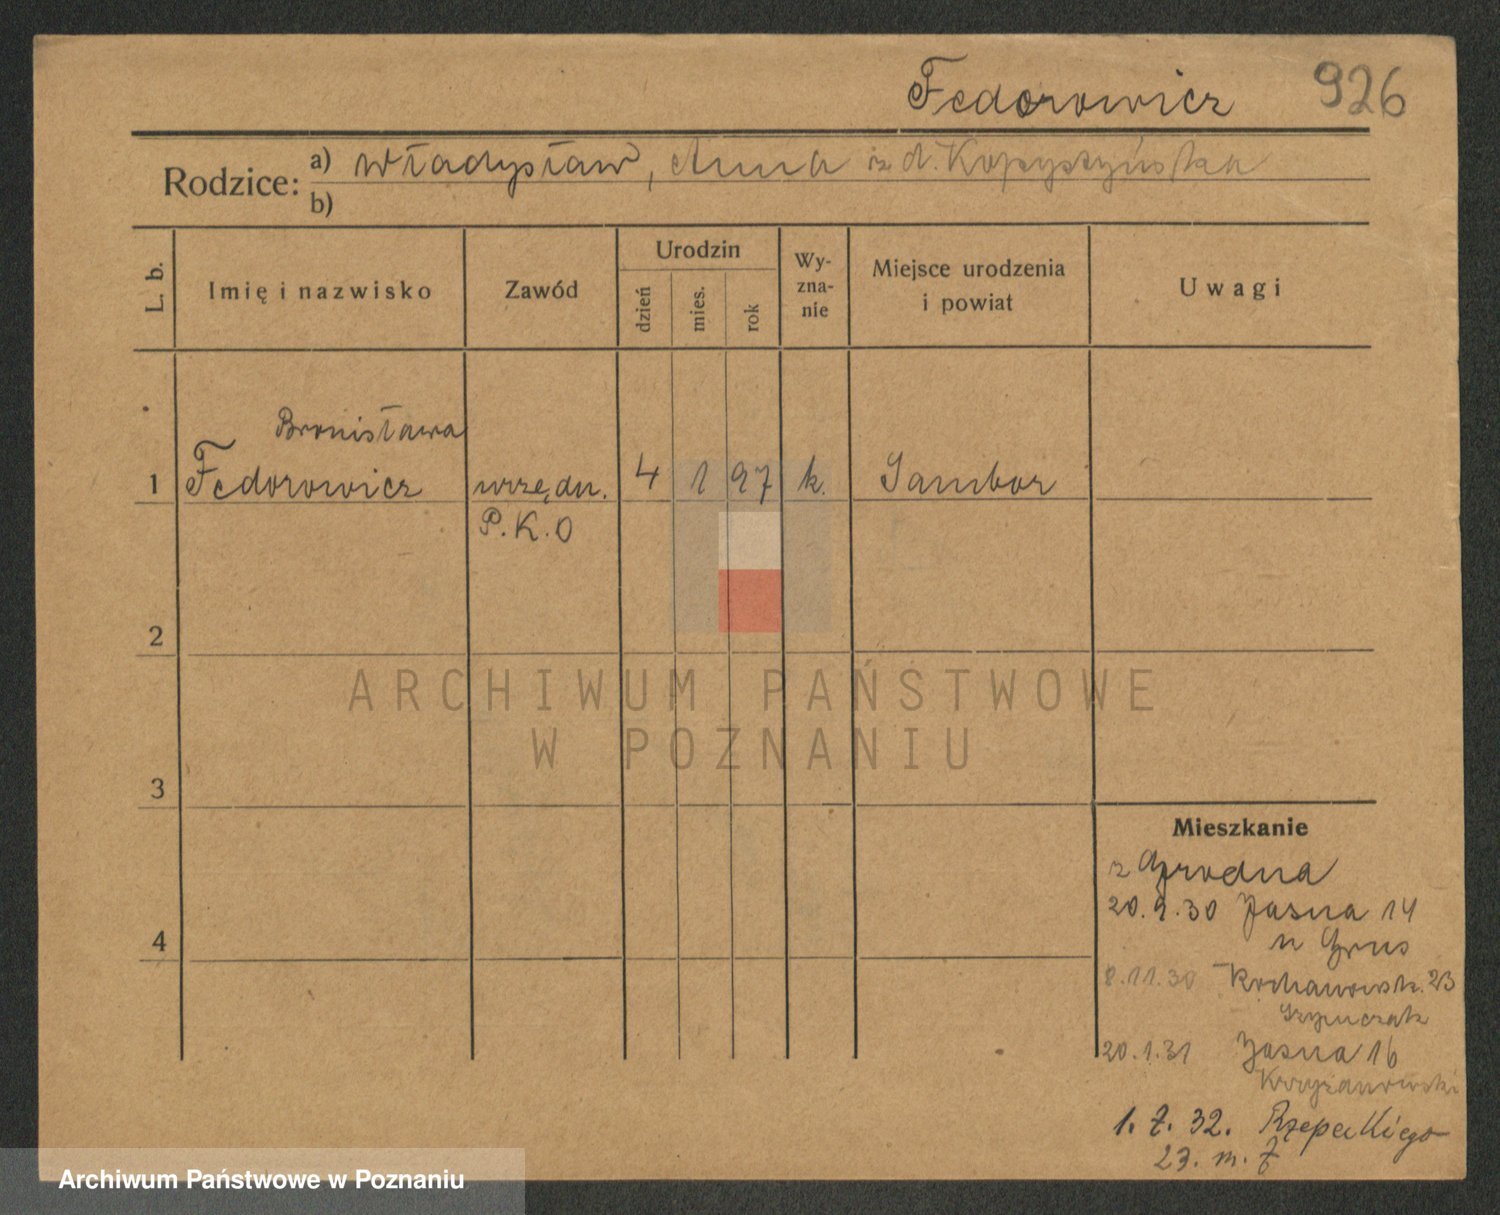 Fedorowicz 926
Rodzice: a) Władysław, Anna z d. Kopystyńska
b)
L. b. Imię i nazwisko Zawód Urodzin dzień mies. rok Wy-zna-nie Miejsce urodzenia i powiat Uwagi
Bronisława
1 Fedorowicz urzędn. 4 1 97 k. Sambor
P.K.O
2
ARCHIWUM PAŃSTWOWE
W POZNANIU
3
Mieszkanie
z Grodna
20.9.30 Jasna 14
4
u Grus
8.11.30 Kochanowsk. 23
Szymczak
20.1.31 Jasna 16
Krzyżanowski
1.7.32. Rzepeckiego
23. m. 7
Archiwum Państwowe w Poznaniu